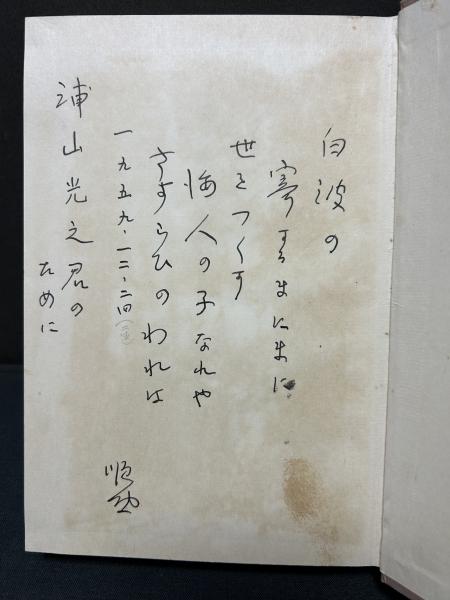 白波の
寄するまにまに
世をつくす
海人の子なれや
さすらひのわれは
一九五九・一二・二四
順助
浦山光之君の
ために